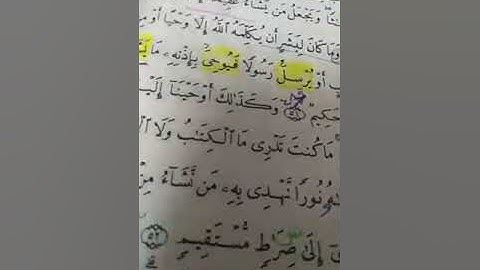 وَيَجْعَلُ مَن يَشَآءُ
وَمَا كَانَ لِبَشَرٍ أَن يُكَلِّمَهُ ٱللَّهُ إِلَّا وَحْيًا أَوْ
أَوْ يُرْسِلُ رَسُولًا فَيُوحِى بِإِذْنِهِۦ مَا
حَكِيمٌ ٥١ وَكَذَٰلِكَ أَوْحَيْنَآ
مَا كُنتَ تَدْرِى مَا ٱلْكِتَٰبُ وَلَا
نُورًا نَّهْدِى بِهِۦ مَن نَّشَآءُ مِنْ
إِلَىٰ صِرَٰطٍ مُّسْتَقِيمٍ ٥٢